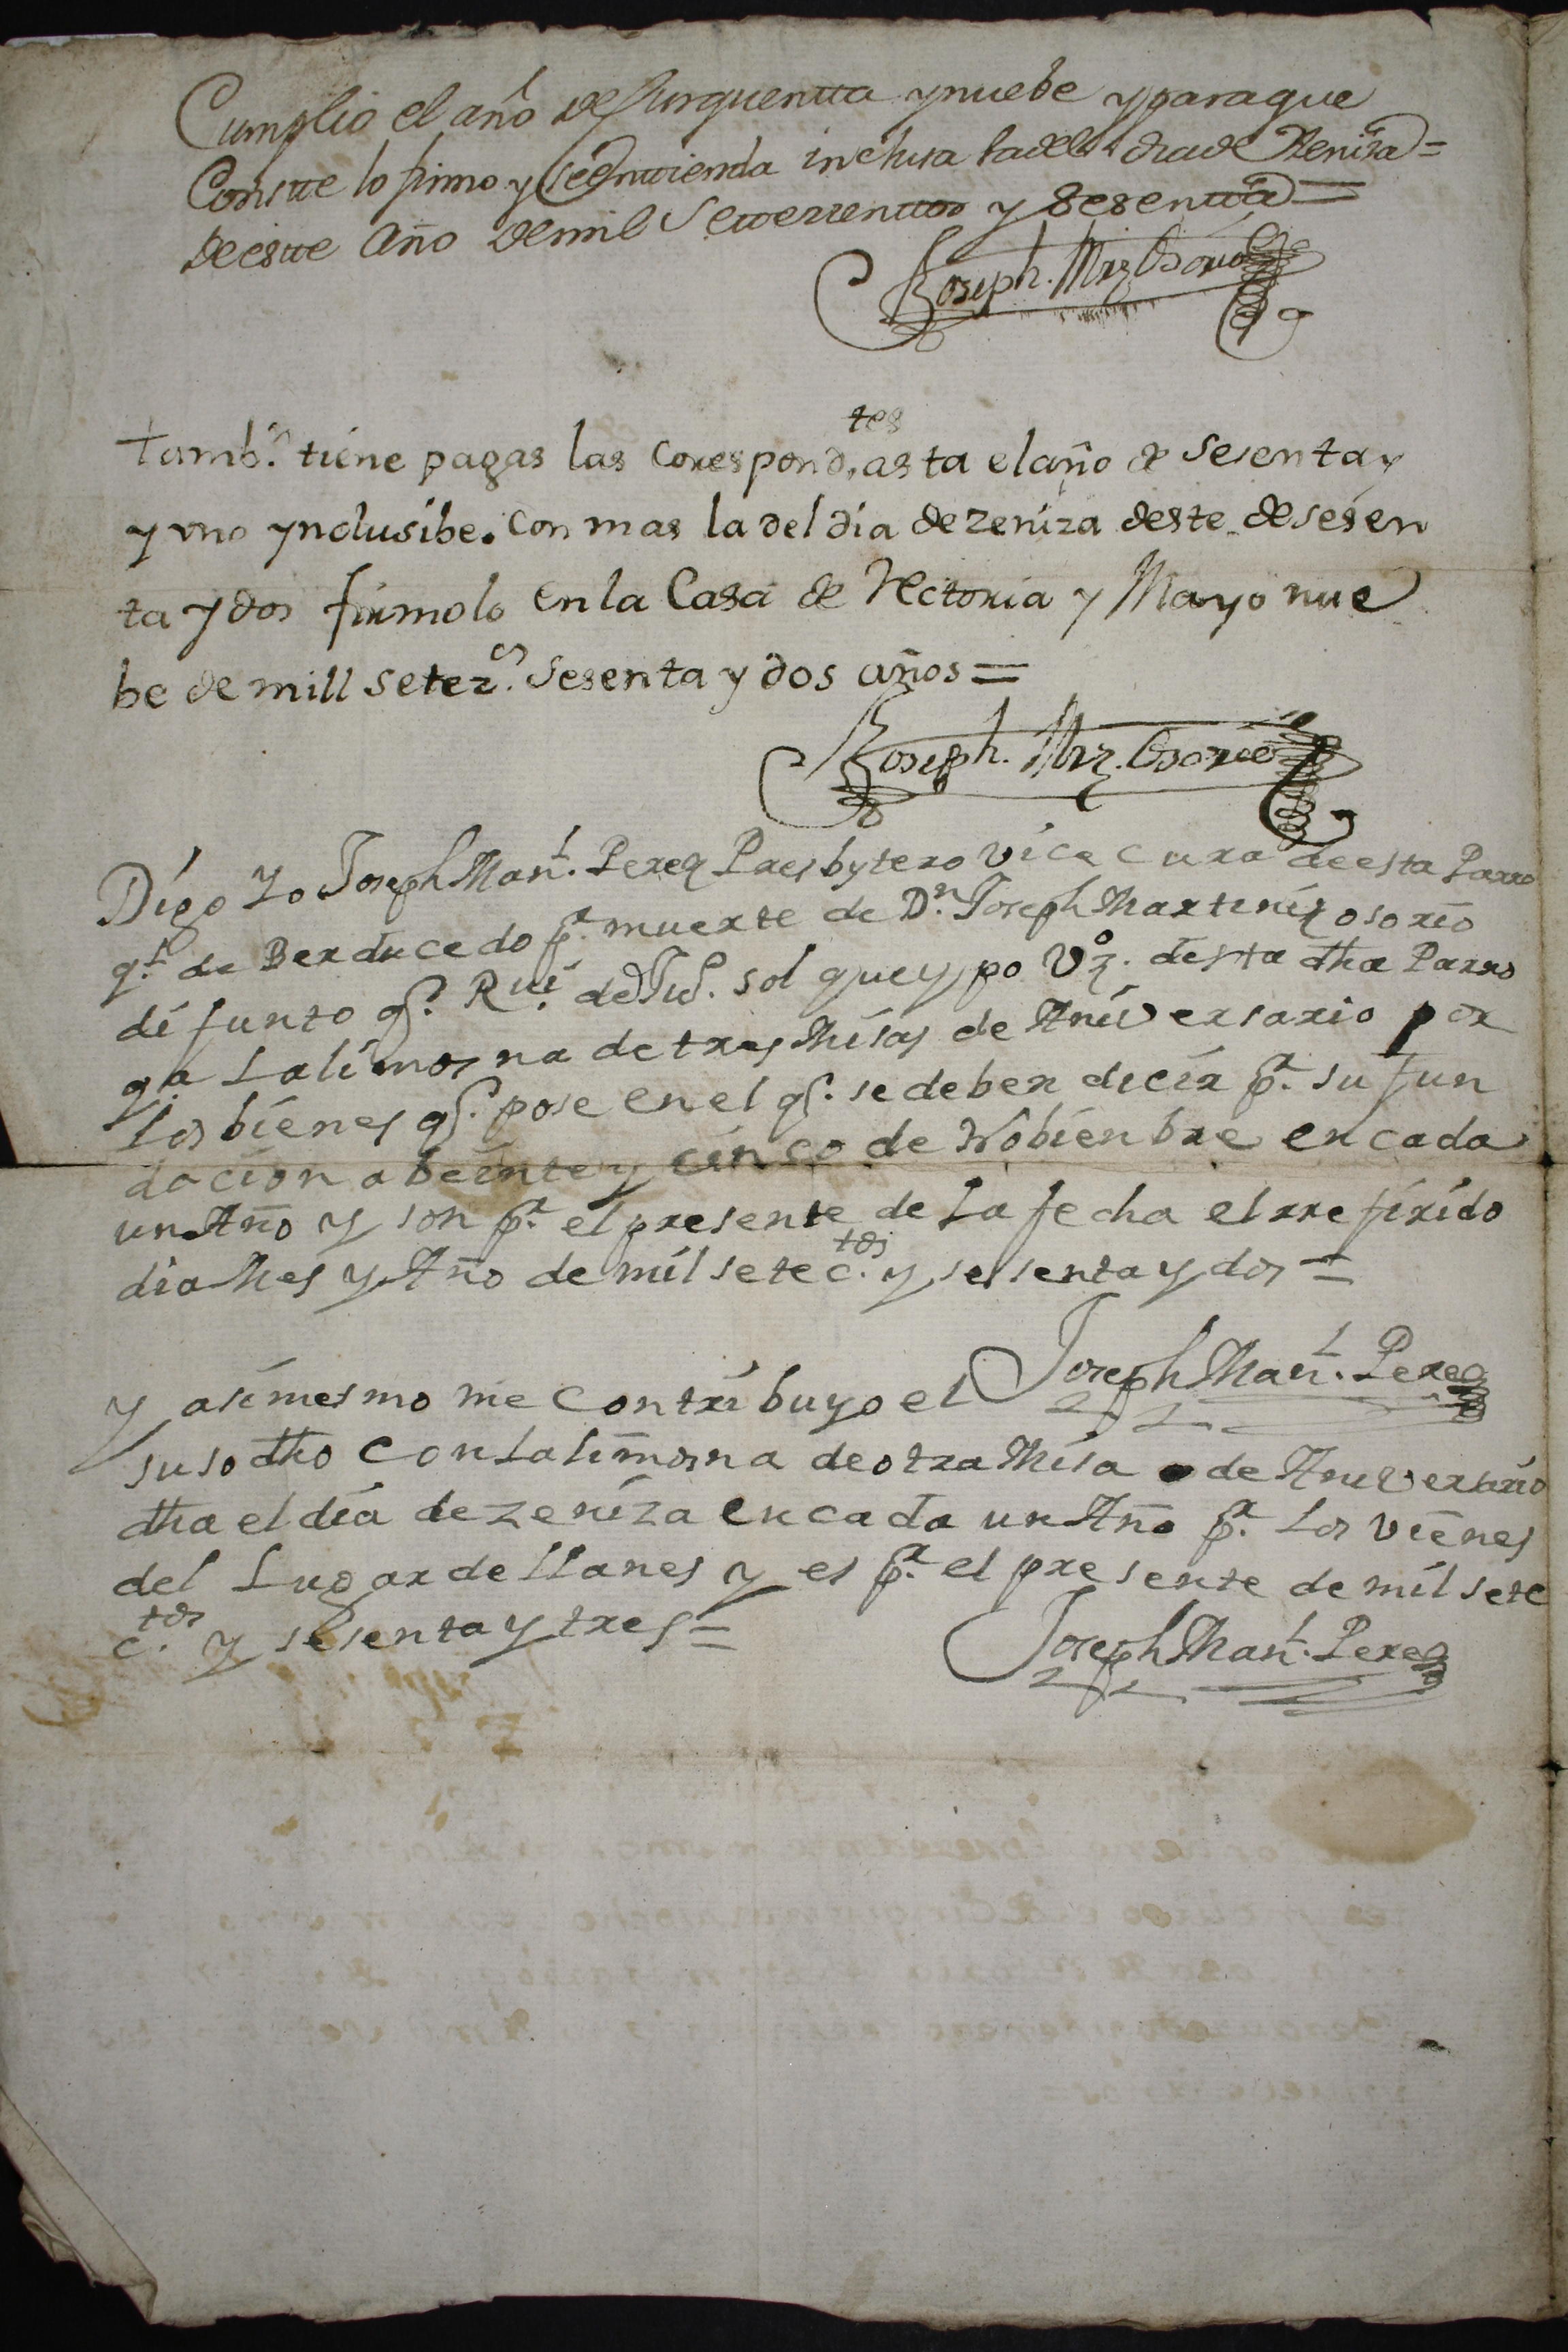 Cumplio el año de sinquentta y nuebe y para que
Constte lo firmo y se enttienda inclusa la del dia de Zeniza =
de estte Año de mil Settezienttos y Sesentta =
Joseph. Mrz Osorio
tamb.n tiene pagas las Corespond.tes asta el año de Sesenta y
y uno ynclusibe. Con mas la del dia de zeniza deste de sesen
ta y dos firmolo en la Casa de Rectoria y Mayo nue
be de mill setez.os Sesenta y dos años =
Joseph. Mrz. Osorio
Digo Yo Joseph Man.l Perez Presbytero Vice cura de esta Parro
q.l de Berducedo p.r muerte de D.n Joseph Martiniz osorio
difunto q.e R.vi de Ju.o sol que y po Vz.o desta dha Parro
q.a La limosna de tres Misas de Aniversario por
Los bienes q.e pose en el q.e se deben dicir p.r su fun
dacion a beinte y cinco de Nobienbre en cada
un Año y son p.r el presente de La fecha el rrefirido
dia Mes y Año de mil setec.tos y sesenta y dos =
Joseph Man.l Perez
Y asimesmo me Contribuyo el
susodho Con La limosna de otra Misa de Aniversario
dha el dia de zeniza en cada un Año p.r Los vienes
del Lugar de Llanes y es p.r el presente de mil sete
c.tos y sesenta y tres =
Joseph Man.l Perez